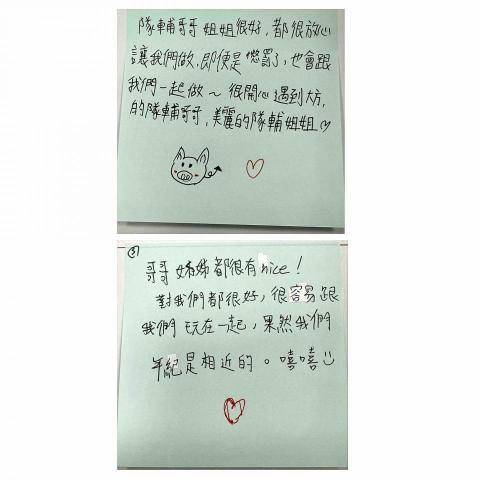 隊輔哥哥姐姐很好,都很放心
讓我們做,即便是懲罰了,也會跟
我們一起做~很開心遇到大方
的隊輔哥哥,美麗的隊輔姐姐♡
⑤
哥哥姊姊都很有nice!
對我們都很好,很容易跟
我們玩在一起,果然我們
年紀是相近的。嘻嘻☺